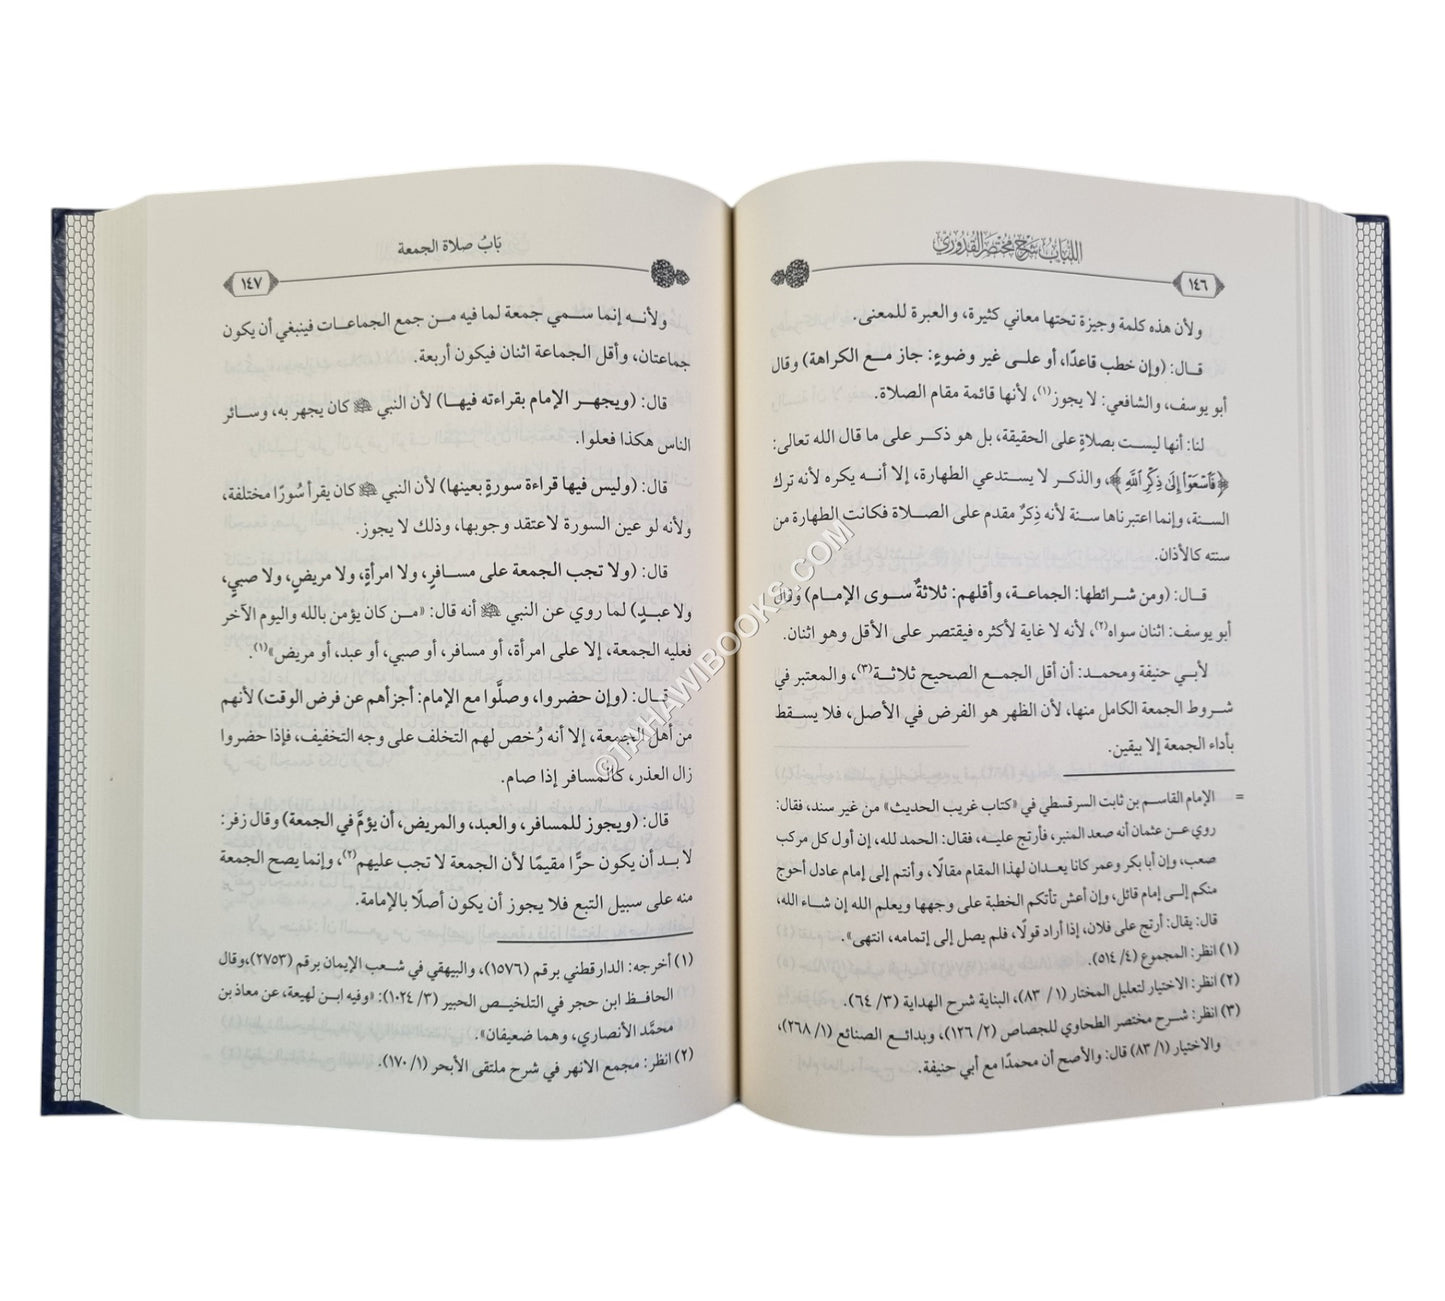 اللباب شرح مختصر القدوري
١٤٦
ولأن هذه كلمة وجيزة تحتها معاني كثيرة، والعبرة للمعنى.
قـال: (وإن خطب قاعدًا، أو علـى غير وضوءٍ: جاز مـع الكراهة) وقال
أبو يوسف، والشافعي: لا يجوز(١)، لأنها قائمة مقام الصلاة.
لنا: أنها ليسـت بصلاةٍ على الحقيقة، بل هو ذكـر على ما قال الله تعالى:
﴿فَٱسْعَوْا۟ إِلَىٰ ذِكْرِ ٱللَّهِ﴾، والذكـر لا يسـتدعي الطهارة، إلا أنـه يكره لأنه ترك
السـنة، وإنما اعتبرناها سـنة لأنه ذِكرٌ مقدم على الصـلاة فكانت الطهارة من
سنته كالأذان.
قـال: (ومن شـرائطها: الجماعـة، وأقلهم: ثلاثةٌ سـوى الإمام) وقال
أبو يوسف: اثنان سواه(٢)، لأنه لا غاية لأكثره فيقتصر على الأقل وهو اثنان.
لأبي حنيفة ومحمـد: أن أقل الجمـع الصحيح ثلاثـة(٣)، والمعتبر في
شـروط الجمعة الكامل منها، لأن الظهر هو الفرض في الأصل، فلا يسـقط
بأداء الجمعة إلا بيقين.
= الإمام القاسم بن ثابت السرقسطي في «كتاب غريب الحديث» من غير سند، فقال:
روي عـن عثمان أنه صعد المنبر، فأرتج عليـه، فقال: الحمد لله، إن أول كل مركب
صعب، وإن أبا بكر وعمر كانا يعـدان لهذا المقام مقالًا، وأنتم إلى إمام عادل أحوج
منكم إلـى إمام قائل، وإن أعش تأتكم الخطبة على وجهها ويعلم الله إن شـاء الله،
قال: يقال: أرتج على فلان، إذا أراد قولًا، فلم يصل إلى إتمامه، انتهى».
(١) انظر: المجموع (٤/ ٥١٤).
(٢) انظر: الاختيار لتعليل المختار (١/ ٨٣)، البناية شرح الهداية (٣/ ٦٤).
(٣) انظر: شـرح مختصر الطحاوي للجصاص (٢/ ١٢٦)، وبدائـع الصنائع (١/ ٢٦٨)،
والاختيار (١/ ٨٣) قال: والأصح أن محمدًا مع أبي حنيفة.
بَابُ صلاة الجمعة
١٤٧
ولأنـه إنما سـمي جمعة لما فيه مـن جمع الجماعـات فينبغي أن يكون
جماعتان، وأقل الجماعة اثنان فيكون أربعة.
قال: (ويجهـر الإمام بقراءته فيهـا) لأن النبي ﷺ كان يجهر به، وسـائر
الناس هكذا فعلوا.
قال: (وليس فيها قراءة سورةٍ بعينها) لأن النبي ﷺ كان يقرأ سُورًا مختلفة،
ولأنه لو عين السورة لاعتقد وجوبها، وذلك لا يجوز.
قال: (ولا تجب الجمعة على مسـافرٍ، ولا امرأةٍ، ولا مريضٍ، ولا صبيٍ،
ولا عبـدٍ) لما روي عن النبي ﷺ أنه قال: «مـن كان يؤمن بالله واليوم الآخر
فعليه الجمعة، إلا على امرأة، أو مسافر، أو صبي، أو عبد، أو مريض»(١).
قـال: (وإن حضروا، وصلَّوا مع الإمام: أجزأهم عن فرض الوقت) لأنهم
من أهل الجمعة، إلا أنه رُخص لهم التخلف على وجه التخفيف، فإذا حضروا
زال العذر، كالمسافر إذا صام.
قال: (ويجوز للمسافر، والعبد، والمريض، أن يؤمَّ في الجمعة) وقال زفر:
لا بـد أن يكون حرًّا مقيمًا لأن الجمعة لا تجب عليهم(٢)، وإنما يصح الجمعة
منه على سبيل التبع فلا يجوز أن يكون أصلًا بالإمامة.
(١) أخرجه: الدارقطني برقم (١٥٧٦)، والبيهقي في شعب الإيمان برقم (٢٧٥٣)،وقال
الحافـظ ابن حجر في التلخيـص الحبير (٣/ ١٠٢٤): «وفيه ابـن لهيعة، عن معاذ بن
محمَّد الأنصاري، وهما ضعيفان».
(٢) انظر: مجمع الانهر في شرح ملتقى الأبحر (١/ ١٧٠).
©TAHAWIBOOKS.COM